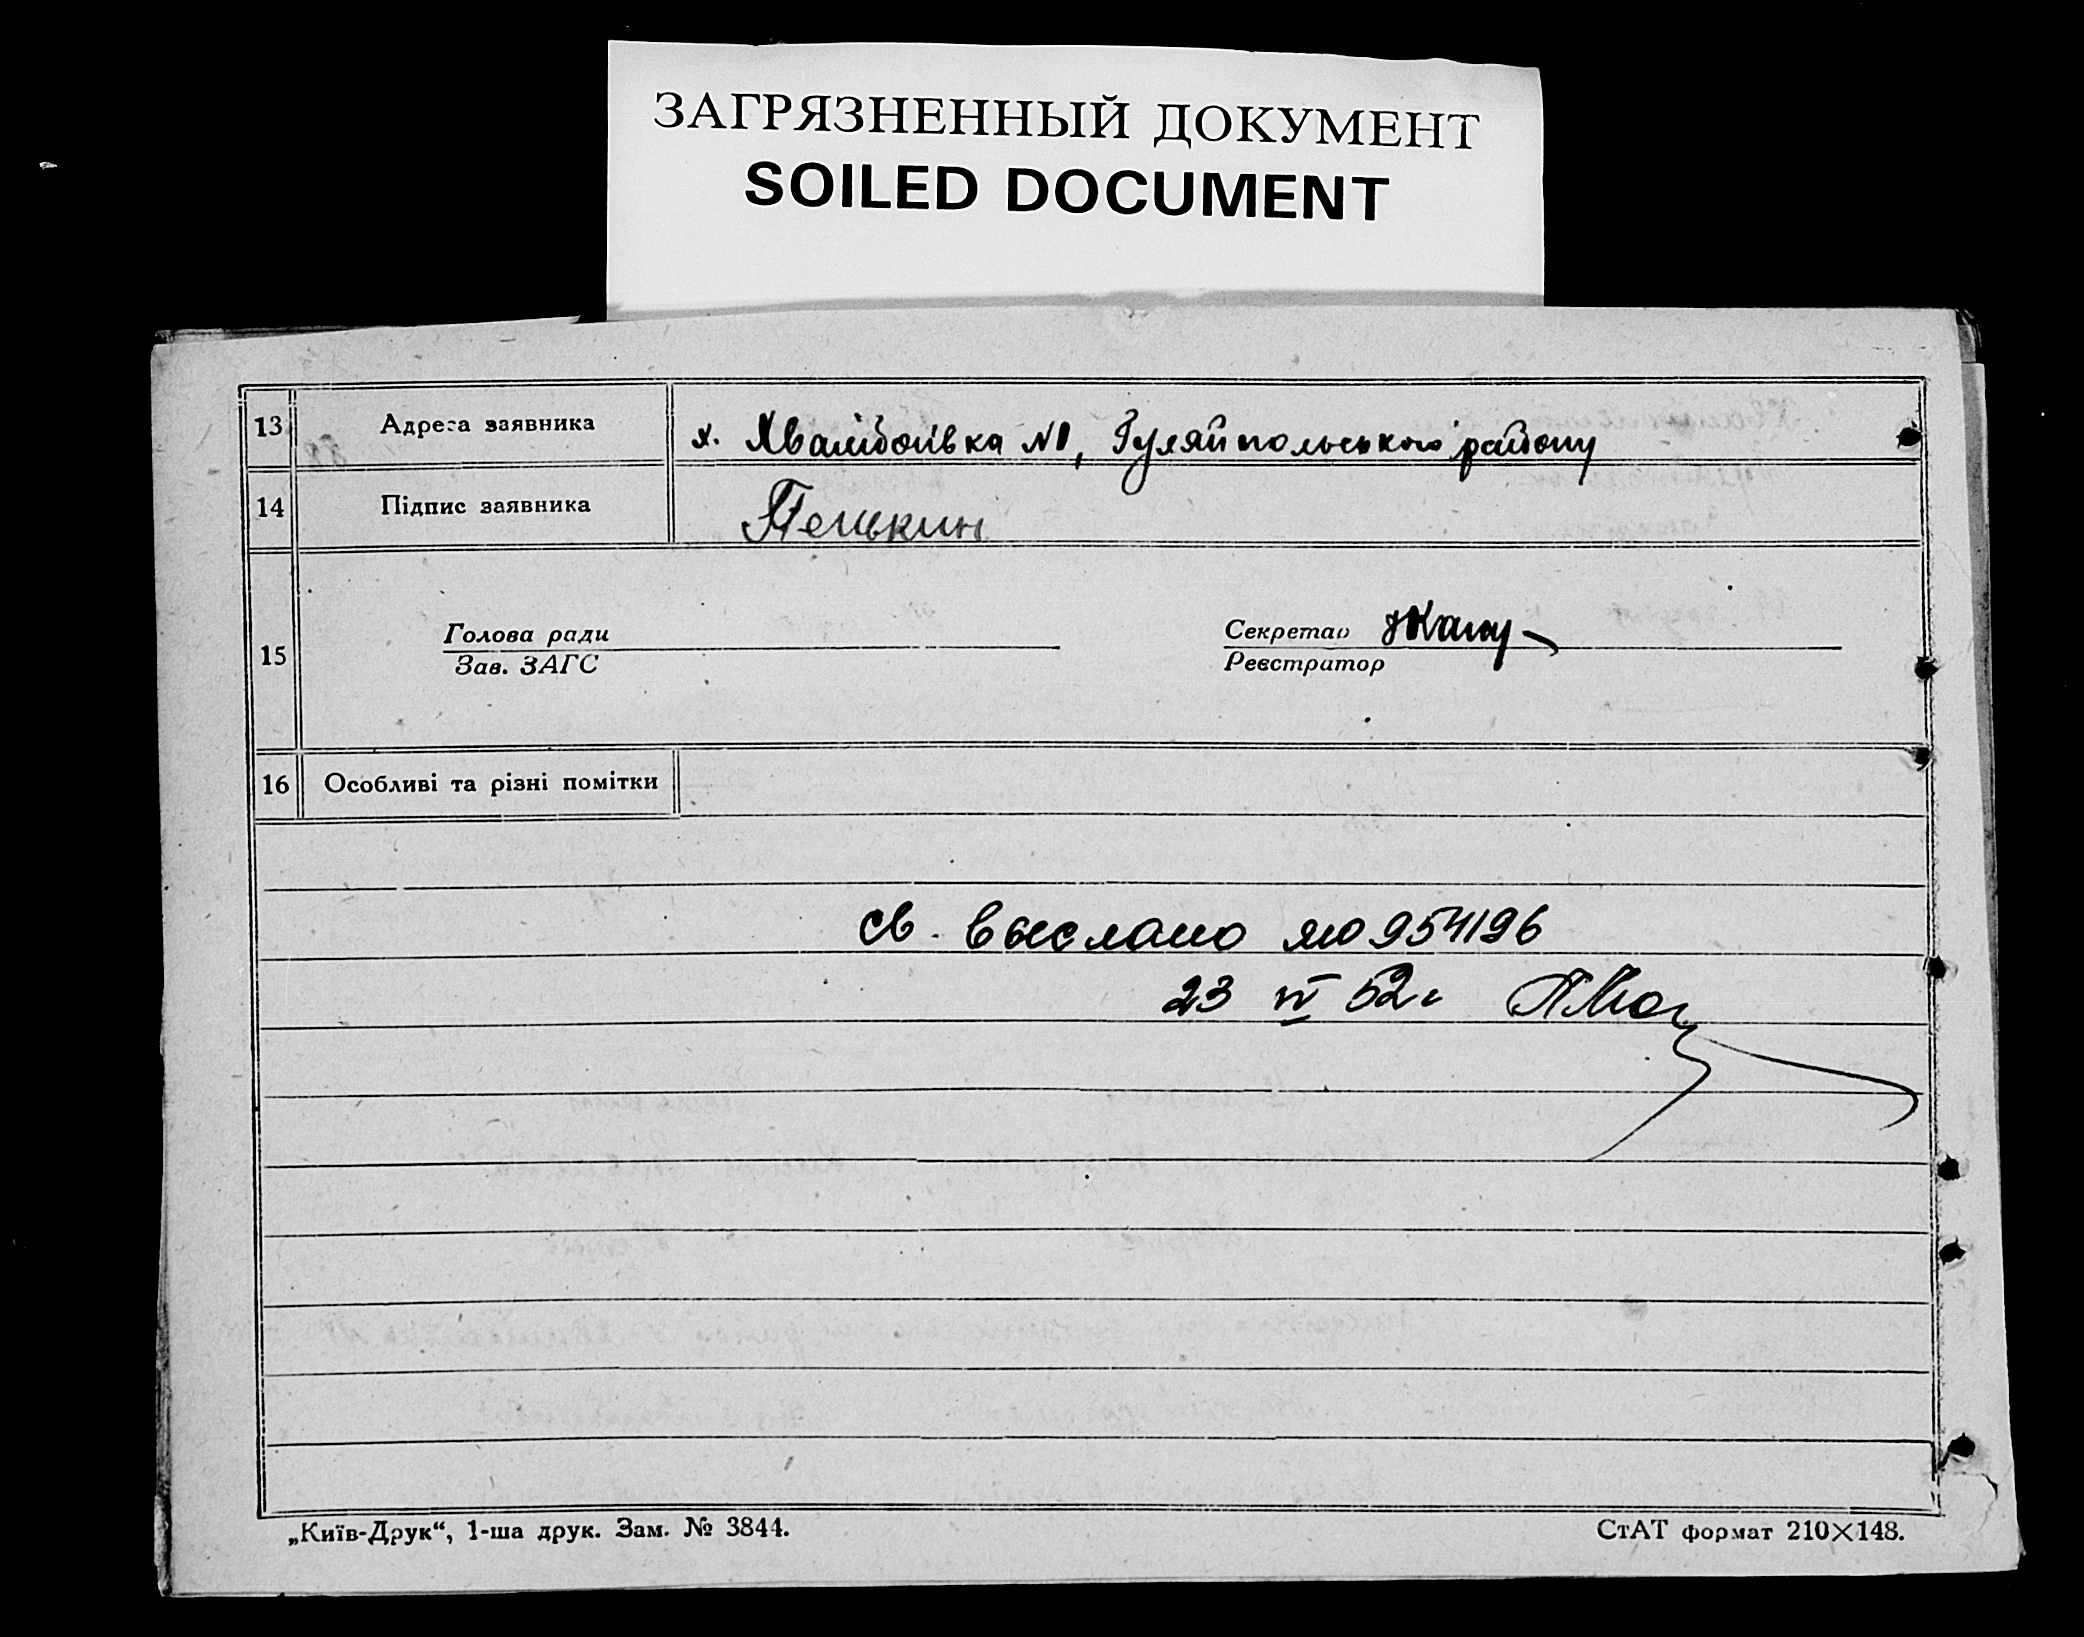 ЗАГРЯЗНЕННЫЙ ДОКУМЕНТ
SOILED DOCUMENT
13 Адреса заявника х. Хвалібоївка №1, Гуляйпольського району
14 Підпис заявника Пенькин
15 Голова ради Секретар
Зав. ЗАГС Реєстратор
16 Особливі та різні помітки
св. выслано ЯЮ 954196
23 VI 52г
„Київ-Друк“, 1-ша друк. Зам. № 3844. СтАТ формат 210×148.